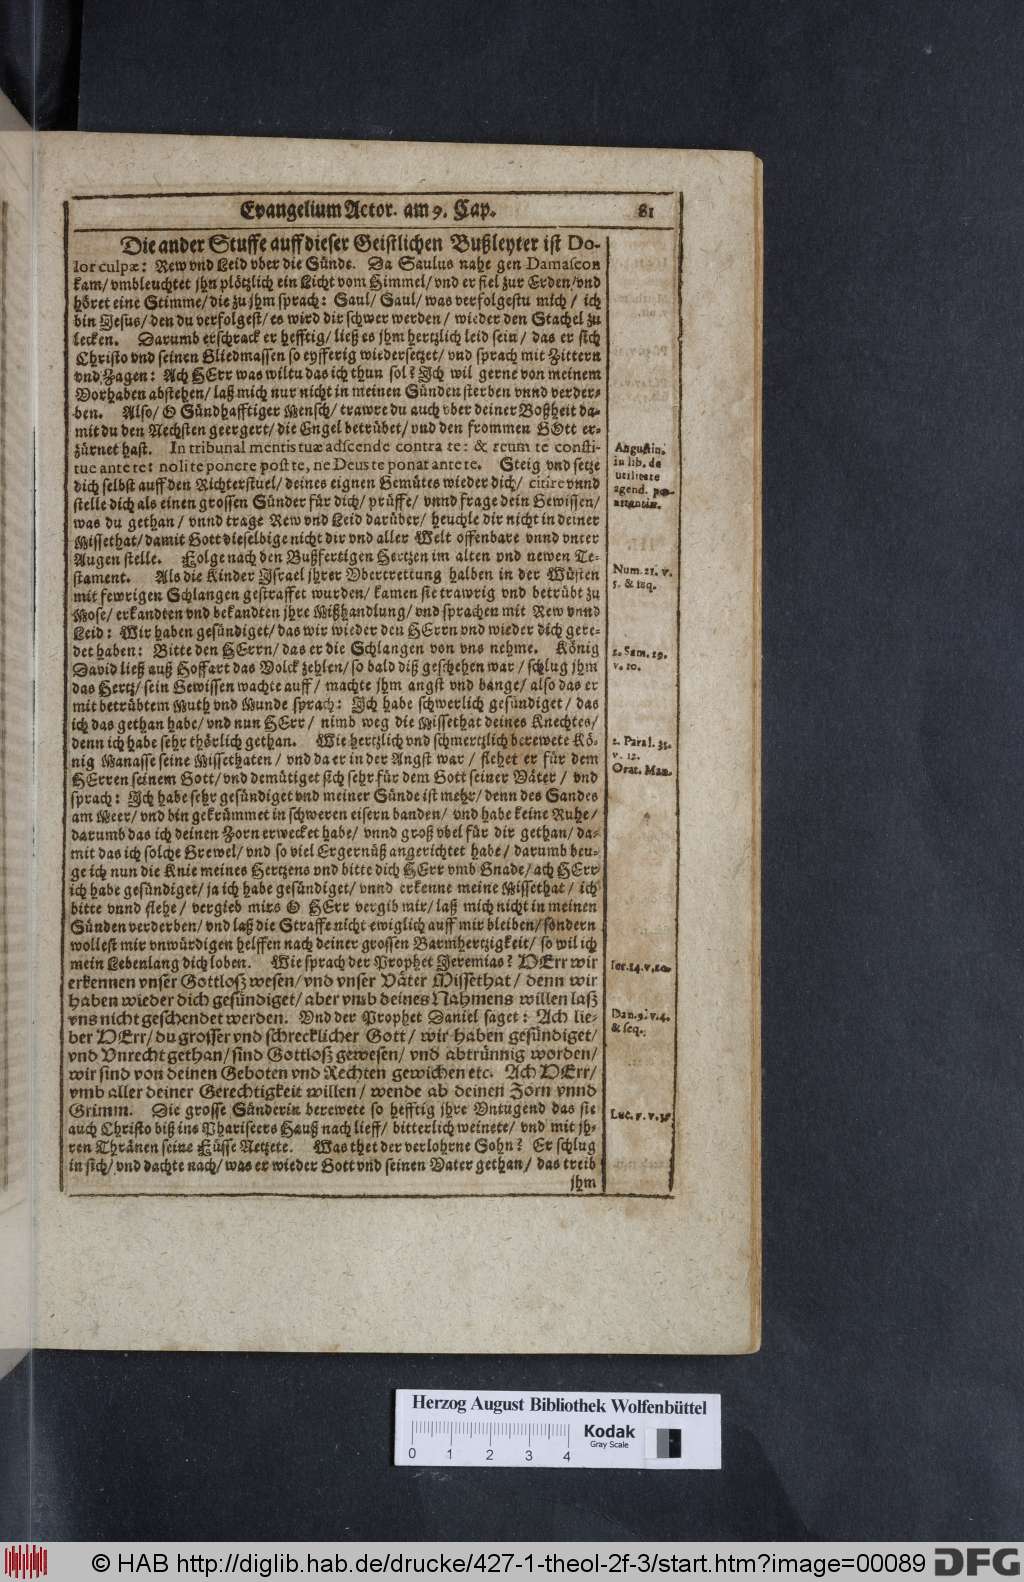 Evangelium Actor. am 9. Cap. 81
Die ander Stuffe auff dieser Geistlichen Bußleyter ist Do-
lor culpæ: Rew vnd Leid vber die Sünde. Da Saulus nahe gen Damascon
kam/ vmbleuchtet jhn plötzlich ein Licht vom Himmel/ vnd er fiel zur Erden/ vnd
höret eine Stimme/ die zu jhm sprach: Saul/ Saul/ was verfolgestu mich/ ich
bin Jesus/ den du verfolgest/ es wird dir schwer werden/ wieder den Stachel zu
lecken. Darumb erschrack er hefftig/ ließ es jhm hertzlich leid sein/ das er sich
Christo vnd seinen Gliedmassen so eyfferig wiedersetzet/ vnd sprach mit Zittern
vnd Zagen: Ach HErr was wiltu das ich thun sol? Ich wil gerne von meinem
Vorhaben abstehen/ laß mich nur nicht in meinen Sünden sterben vnnd verder-
ben. Also/ O Sündhafftiger Mensch/ trawre du auch vber deiner Boßheit da-
mit du den Nechsten geergert/ die Engel betrübet/ vnd den frommen GOtt er-
zürnet hast. In tribunal mentis tuæ adscende contra te: & reum te consti-
tue ante te: nolite ponere post te, ne Deus te ponat ante te. Steig vnd setze
dich selbst auff den Richterstuel/ deines eignen Gemütes wieder dich/ citire vnnd
stelle dich als einen grossen Sünder für dich/ prüffe/ vnnd frage dein Gewissen/
was du gethan/ vnnd trage Rew vnd Leid darüber/ heuchle dir nicht in deiner
Missethat/ damit Gott dieselbige nicht dir vnd aller Welt offenbare vnnd vnter
Augen stelle. Folge nach den Bußfertigen Hertzen im alten vnd newen Te-
stament. Als die Kinder Israel jhrer Vbertrettung halben in der Wüsten
mit fewrigen Schlangen gestraffet wurden/ kamen sie trawrig vnd betrübt zu
Mose/ erkandten vnd bekandten jhre Mißhandlung/ vnd sprachen mit Rew vnnd
Leid: Wir haben gesündiget/ das wir wieder den HErrn vnd wieder dich gere-
det haben: Bitte den HErrn/ das er die Schlangen von vns nehme. König
David ließ auß Hoffart das Volck zehlen/ so bald diß geschehen war/ schlug jhm
das Hertz/ sein Gewissen wachte auff/ machte jhm angst vnd bange/ also das er
mit betrübtem Muth vnd Munde sprach: Ich habe schwerlich gesündiget/ das
ich das gethan habe/ vnd nun HErr/ nimb weg die Missethat deines Knechtes/
denn ich habe sehr thörlich gethan. Wie hertzlich vnd schmertzlich berewete Kö-
nig Manasse seine Missethaten/ vnd da er in der Angst war/ flehet er für dem
HErren seinem Gott/ vnd demütiget sich sehr für dem Gott seiner Väter/ vnd
sprach: Ich habe sehr gesündiget vnd meiner Sünde ist mehr/ denn des Sandes
am Meer/ vnd bin gekrümmet in schweren eisern banden/ vnd habe keine Ruhe/
darumb das ich deinen Zorn erwecket habe/ vnnd groß vbel für dir gethan/ da-
mit das ich solche Grewel/ vnd so viel Ergernüß angerichtet habe/ darumb beu-
ge ich nun die Knie meines Hertzens vnd bitte dich HErr vmb Gnade/ ach HErr
ich habe gesündiget/ ja ich habe gesündiget/ vnnd erkenne meine Missethat/ ich
bitte vnnd flehe/ vergieb mirs O HErr vergib mir/ laß mich nicht in meinen
Sünden verderben/ vnd laß die Straffe nicht ewiglich auff mir bleiben/ sondern
wollest mir vnwürdigen helffen nach deiner grossen Barmhertzigkeit/ so wil ich
mein Lebenlang dich loben. Wie sprach der Prophet Jeremias? HErr wir
erkennen vnser Gottloß wesen/ vnd vnser Väter Missethat/ denn wir
haben wieder dich gesündiget/ aber vmb deines Nahmens willen laß
vns nicht geschendet werden. Vnd der Prophet Daniel saget: Ach lie-
ber HErr/ du grosser vnd schrecklicher Gott/ wir haben gesündiget/
vnd Vnrecht gethan/ sind Gottloß gewesen/ vnd abtrünnig worden/
wir sind von deinen Geboten vnd Rechten gewichen etc. Ach HErr/
vmb aller deiner Gerechtigkeit willen/ wende ab deinen Zorn vnnd
Grimm. Die grosse Sünderin berewete so hefftig jhre Vntugend das sie
auch Christo biß ins Phariseers Hauß nach lieff/ bitterlich weinete/ vnd mit jh-
ren Thränen seine Füsse Netzete. Was thet der verlohrne Sohn? Er schlug
in sich/ vnd dachte nach/ was er wieder Gott vnd seinen Vater gethan/ das treib
jhm
Augustin.
in lib. de
utilitate
agend. pœ-
nitentiæ.
Num. 21. v.
5. & seq.
2. Sam. 29.
v. 10.
2. Paral. 33.
v. 12.
Orat. Man.
Ier. 14. v. 20.
Dan. 9. v. 4.
& seq.
Luc. 7. v. 38
Herzog August Bibliothek Wolfenbüttel
0 1 2 3 4
Kodak
Gray Scale
© HAB http://diglib.hab.de/drucke/427-1-theol-2f-3/start.htm?image=00089
DFG